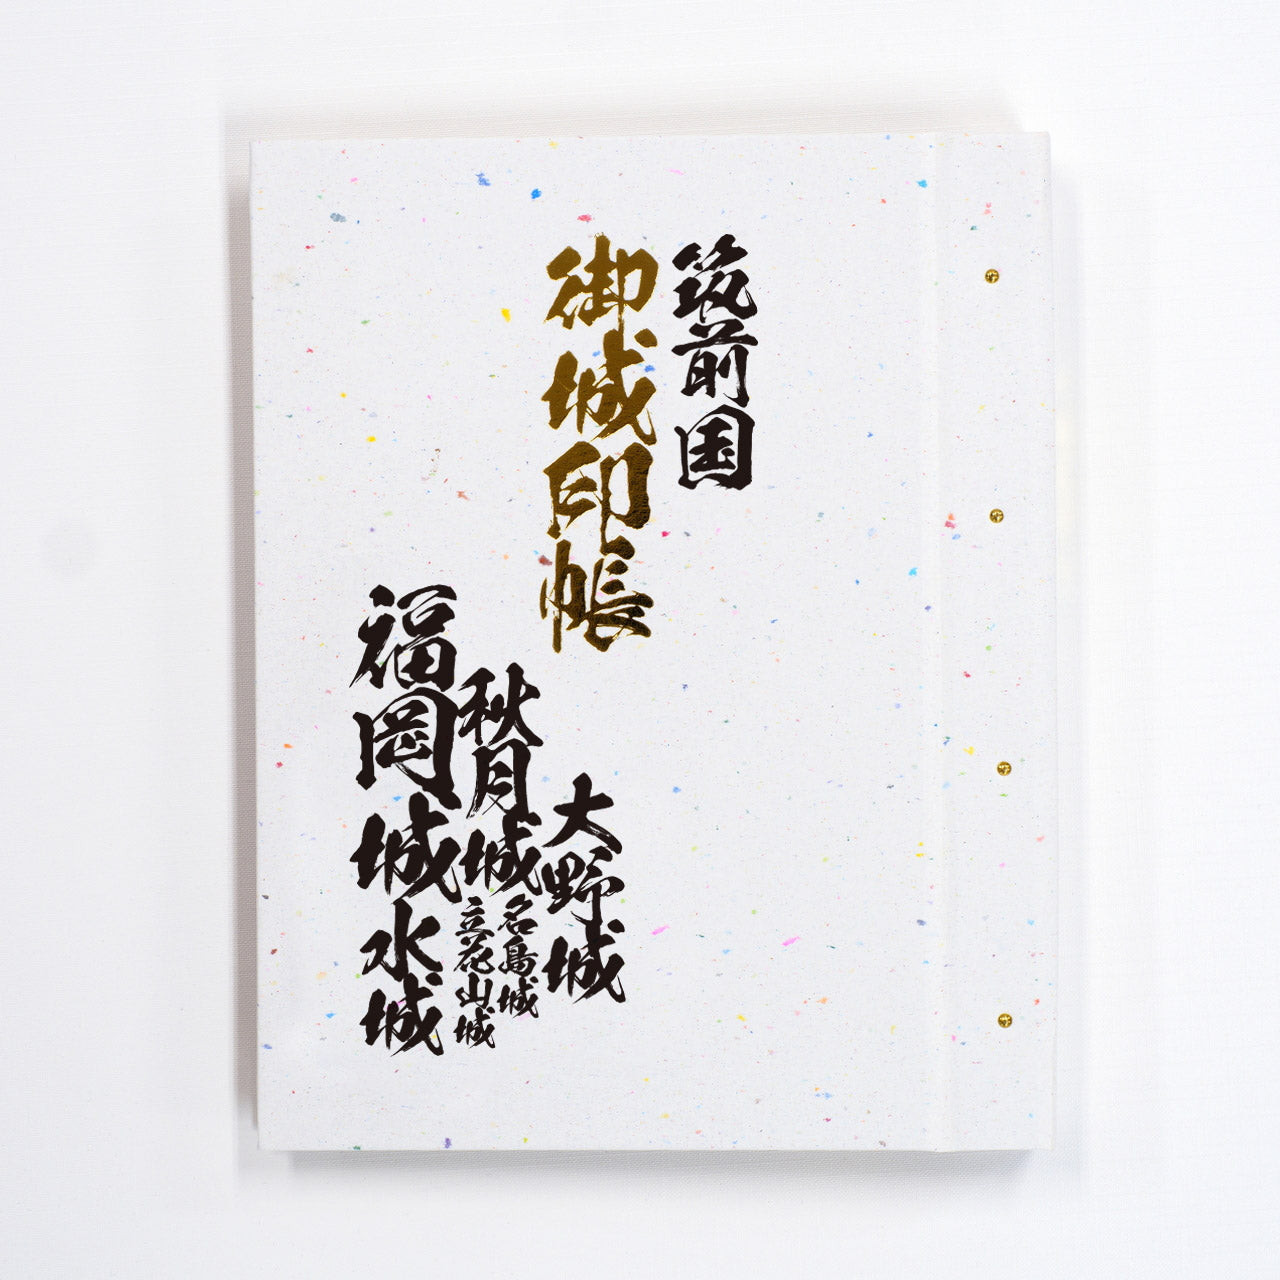 筑前国
御城印帳
大野城
名島城
秋月城
立花山城
福岡城
水城